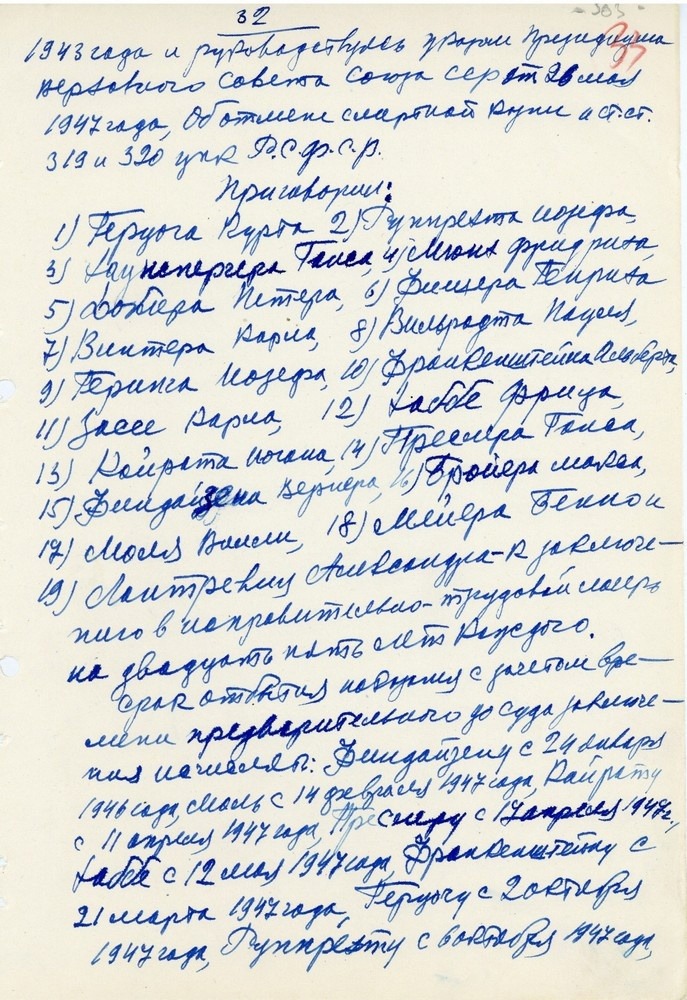 32
303
33
1943 года и руководствуясь указом Президиума
Верховного Совета Союза ССР от 26 мая
1947 года, Об отмене смертной казни и ст.ст.
319 и 320 упк Р.С.Ф.С.Р.
Приговорил:
1) Герцога Курта 2) Руппрехта Иозефа,
3) Ганса, 4) Мюнх Фридриха,
5) Петера, 6) Фишера Генриха
7) Винтера Карла, 8) Вильродта Пауля,
9) Геринга Иозефа, 10) Франкенштейна Альберта,
11) Зассе Карла, 12) Хаббе Фрица,
13) Кайрата Иогана, 14) Преснера Ганса,
15) Финдайзена Вернера, 16) Бройера Макса,
17) Моля Вилли, 18) Мейера Бенной
19) Александра - к заключе-
нию в исправительно-трудовой лагерь
на двадцать пять лет каждого.
Срок отбытия наказания с зачетом вре-
мени предварительного до суда заключе-
ния исчислять: Финдайзену с 24 января
1946 года, Моль с 14 февраля 1947 года, Кайрату
с 11 апреля 1947 года, Преснеру с 17 апреля 1947 г.,
Хаббе с 12 мая 1947 года, Франкенштейну с
21 марта 1947 года, Герцогу с 2 октября
1947 года, Руппрехту с 6 октября 1947 года,